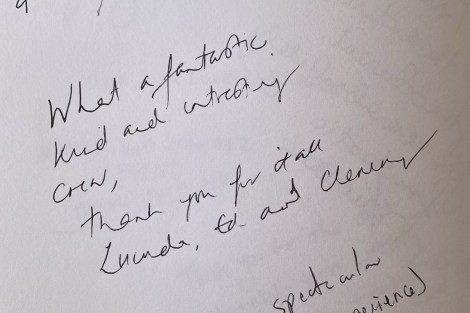 What a fantastic.
Kind and intresting
crew,
thank you for it all
Lucinda, Ed and Clemency
spectacular